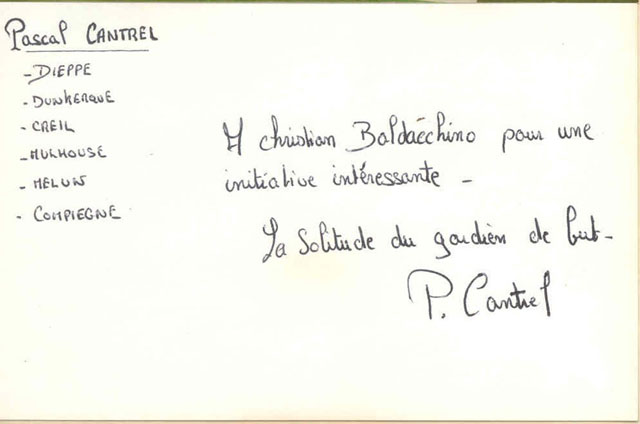 Pascal CANTREL
- DIEPPE
- DUNKERQUE
- CREIL
- MULHOUSE
- MELUN
- COMPIEGNE
A christian Baldaéchino pour une
initiative intéressante -
La Solitude du gardien de but -
P. Cantrel